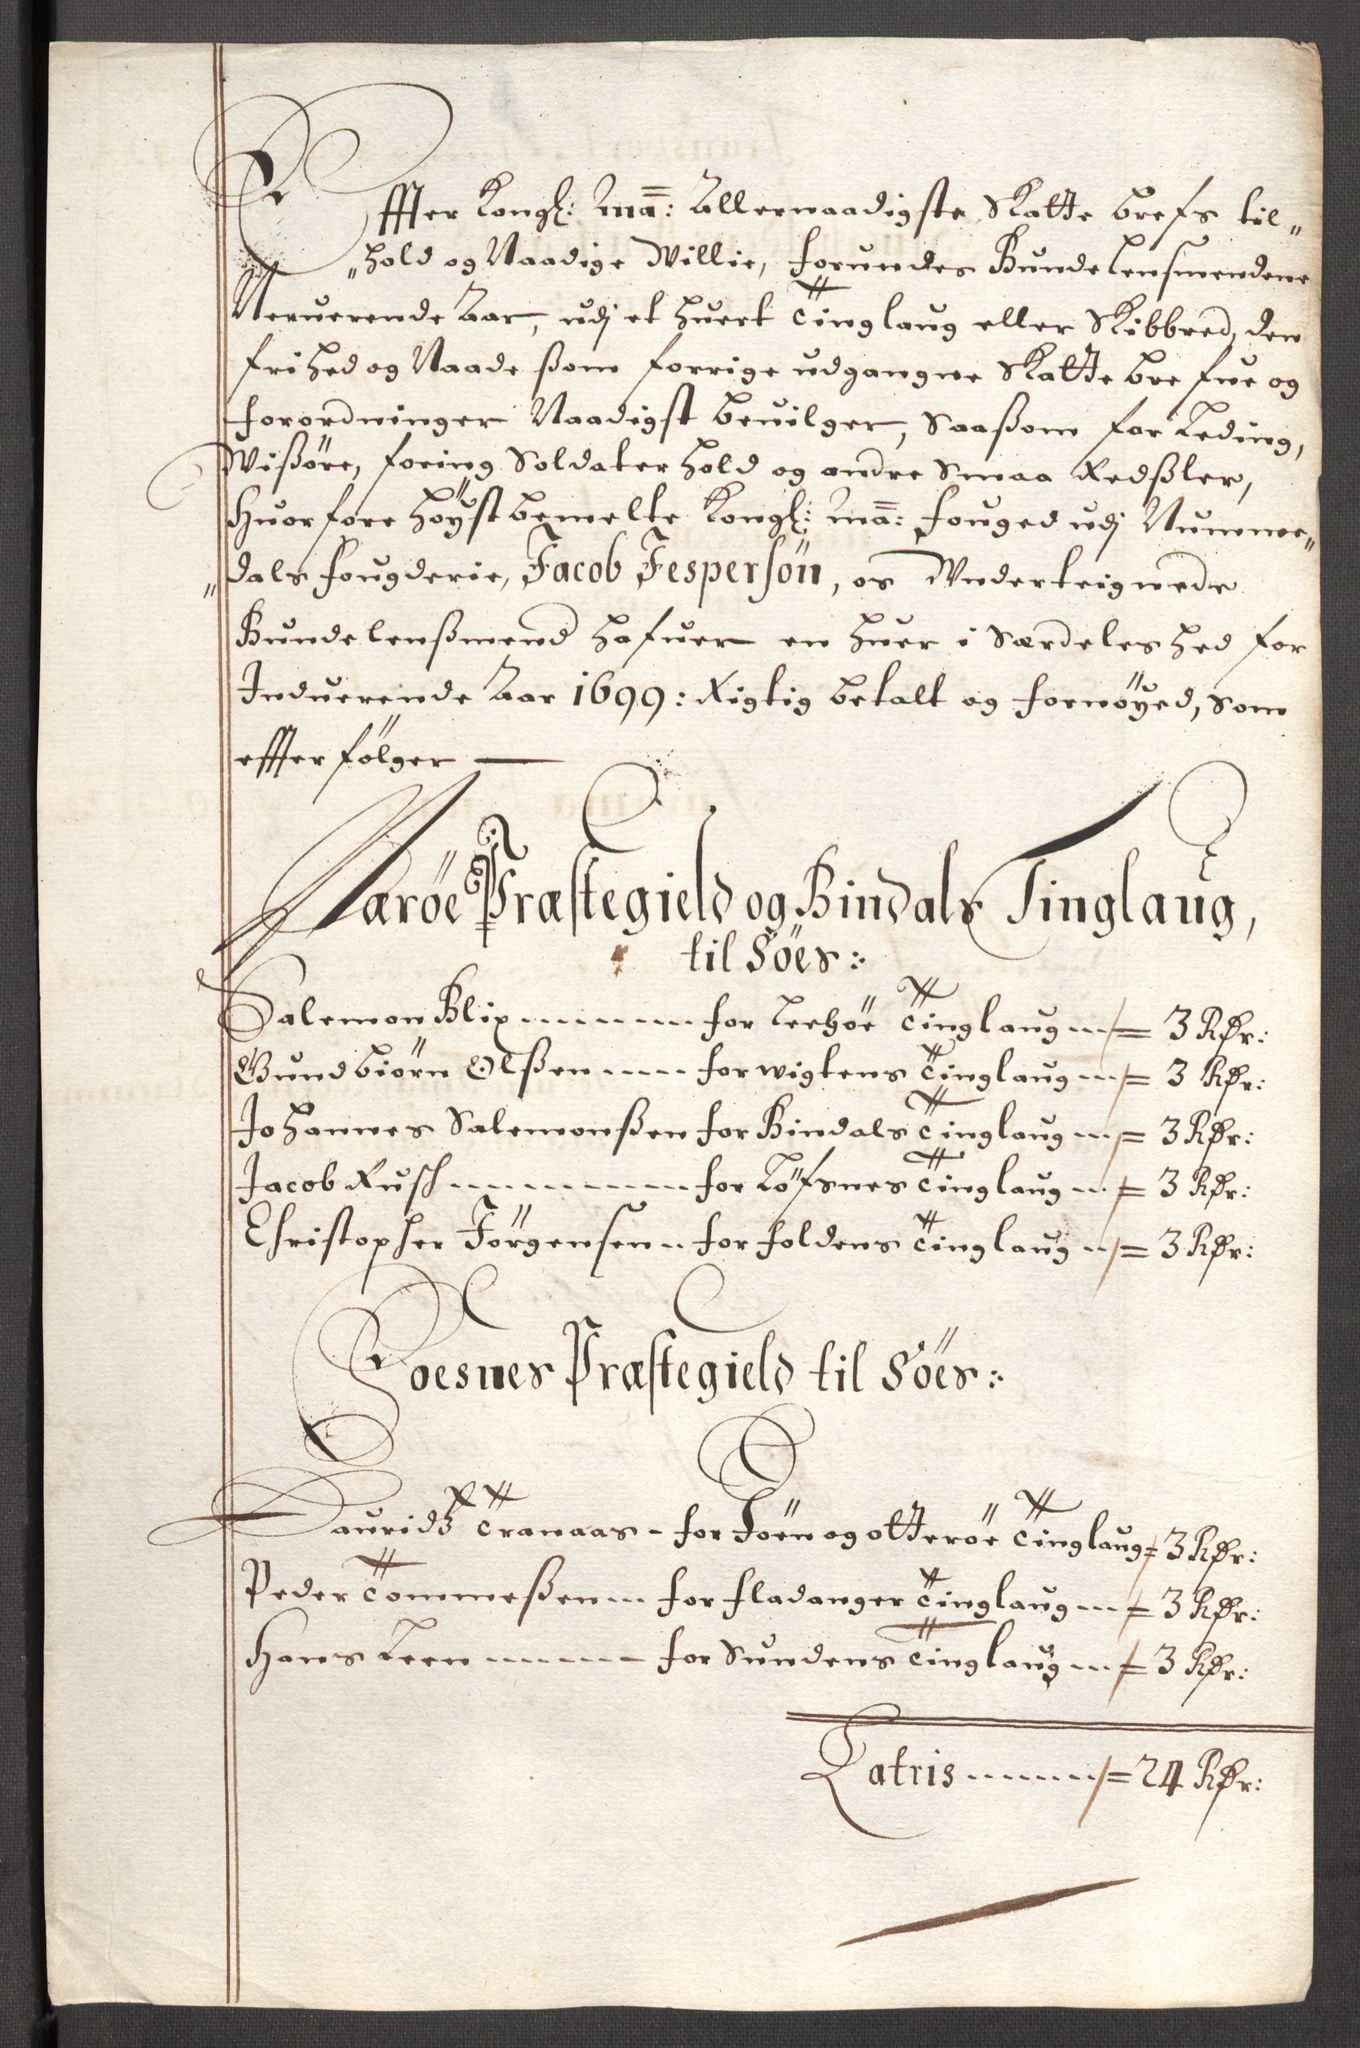 Effter Kongl: Ma: Allernaadigste Skatte brefs til„
„hold og Naadige Willie, forundes Bundelensmendene
Neruerende Aar, udj et huert Tinglaug eller Skibbred, den
frihed og Naade ßom forrige udgangne Skatte brefue og
forordninger Naadigst beuilger, Saaßom for Leding,
Wißøre, foring Soldaterhold og andre Smaa Redßler,
Huorfore höystbemelte Kongl: Ma: fouged udj Numme„
„dals fougderie, Jacob Jespersön, os Underteignede
Bundelenßmend hafuer en huer i Særdeleshed for
Induerende Aar 1699: Rigtig betalt og fornöyed, Som
effterfölger
Naröe Præstegield og Bindals Tinglaug,
til Söes:
Salemon Blix for Leehöe Tinglaug = 3 Rdr:
Gundbiörn Olßen for wigtens Tinglaug = 3 Rdr:
Johannes Salemonßen for Bindals Tinglaug = 3 Rdr:
Jacob Rusch for Löfsnes Tinglaug = 3 Rdr:
Christopher Jörgensen for foldens Tinglaug = 3 Rdr:
Foesnes Præstegield til Söes:
Lauridz Tranaas - for Jöen og Otteröe Tinglaug = 3 Rdr:
Peder Tommeßen for fladanger Tinglaug = 3 Rdr:
Hans Leen for Sundens Tinglaug = 3 Rdr:
Latris = 24 Rdr: